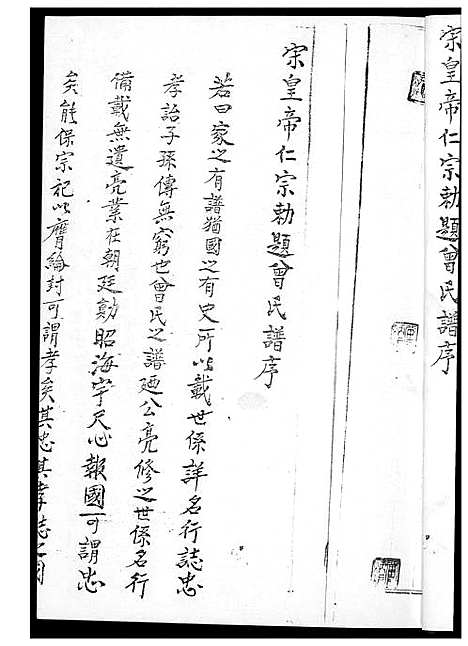 宗皇帝仁宗勅題曾氏譜序
宗皇帝仁宗勅題曾氏譜序
若曰家之有譜猶國之有史所以載世係詳名行誌忠
孝詒子孫傳無窮也曾民之譜廼公亮修之世係名行
備載無遺亮業在朝廷勛昭海宇尺心報國可謂忠
矣能保宗祀以膺綸封可謂孝矣其忠其孝誌之